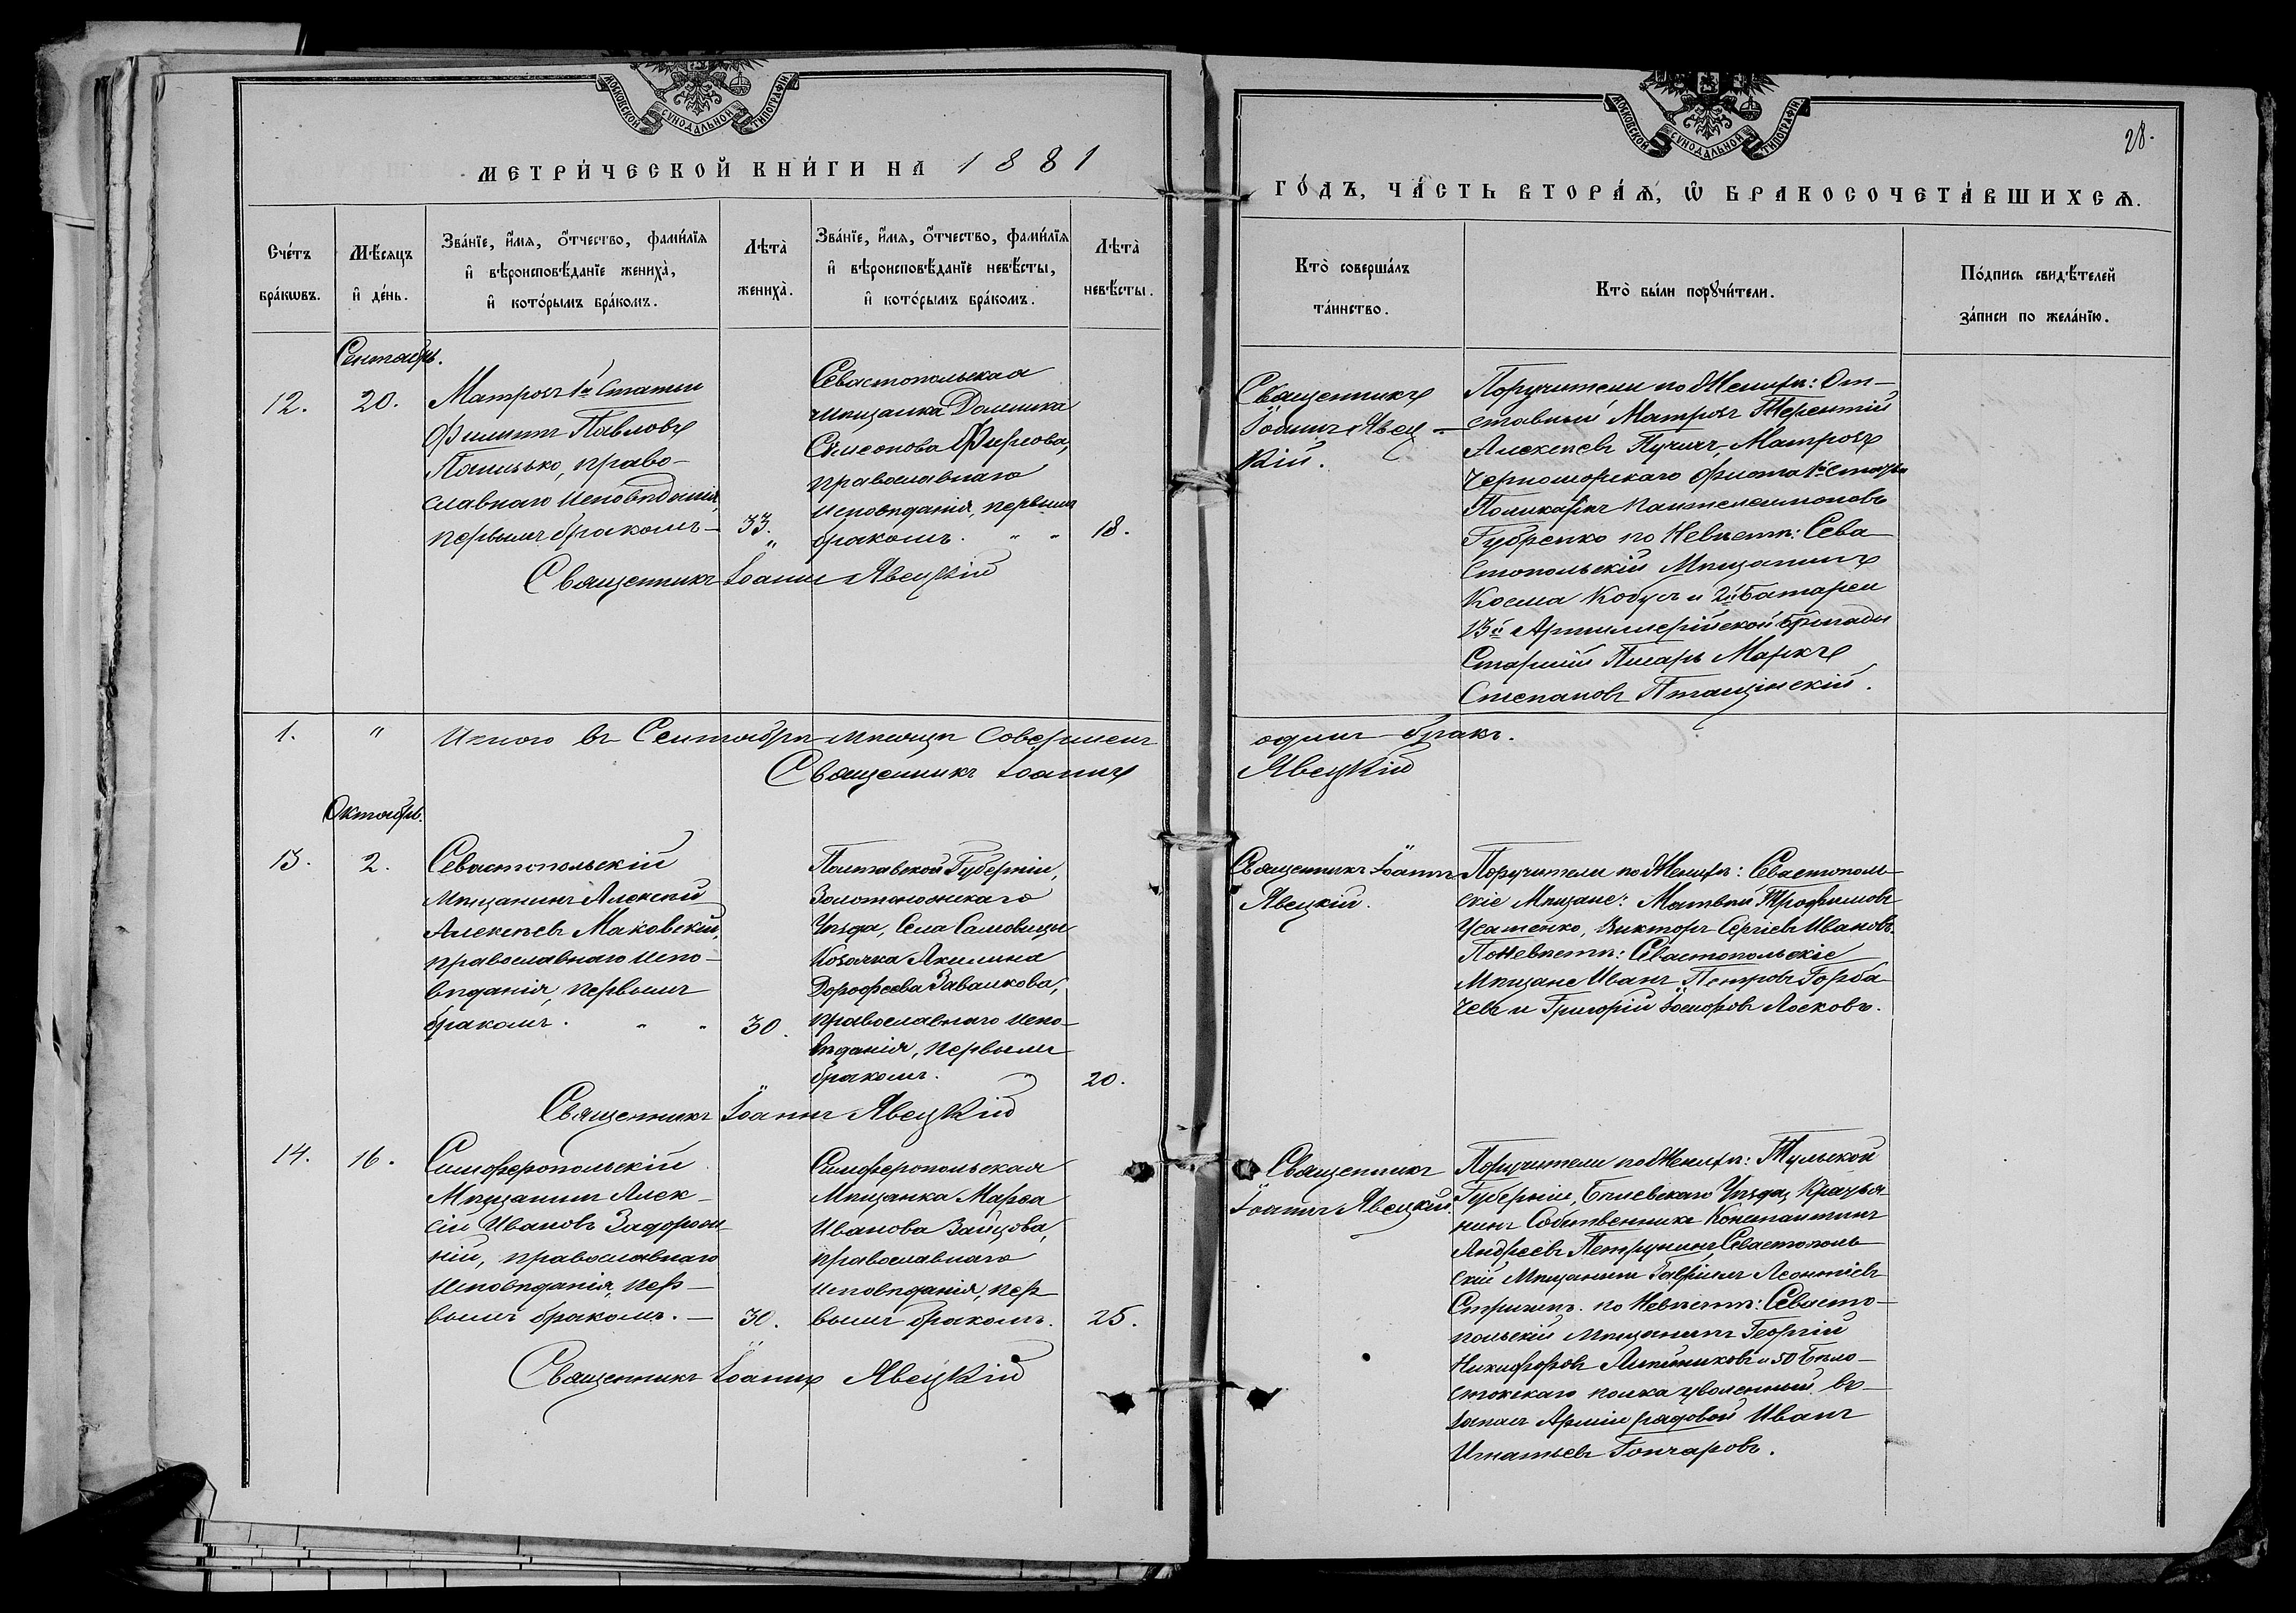 МОСКОВСКОЙ СѴНОДАЛЬНОЙ ТИПОГРАФІИ
МОСКОВСКОЙ СѴНОДАЛЬНОЙ ТИПОГРАФІИ
28.
МЕТРИ́ЧЕСКОЙ КНИ́ГИ НА 1881
ГО́ДЪ, ЧА́СТЬ ВТОРА́Ѧ, Ѡ҆ БРАКОСОЧЕТА́ВШИХСѦ.
Сче́тъ
бра́кѡвъ.
Мѣ́сяцъ
и҆ де́нь.
Зва́нїе, и҆́мя, ѻ҆́тчество, фами́лїя
и҆ вѣроисповѣ́данїе жениха̀,
и҆ кото́рымъ бра́комъ.
Лѣта̀
жениха̀.
Зва́нїе, и҆́мя, ѻ҆́тчество, фами́лїя
и҆ вѣроисповѣ́данїе невѣ́сты,
и҆ кото́рымъ бра́комъ.
Лѣта̀
невѣ́сты.
Кто̀ соверша́лъ
та́инство.
Кто̀ бы́ли порꙋчи́тели.
По́дпись свидѣ́телей
за́писи по жела́нїю.
Сентябрь.
12.
20.
Матросъ 1й Статьи
Филиппъ Павловъ
право-
славнаго Исповѣданія,
первымъ бракомъ
33.
Севастопольская
мѣщанка Домника
Симеонова Фирсова,
православнаго
исповѣданія, первымъ
бракомъ. " "
18.
Священникъ Іоаннъ Явецкій
Священникъ
Іоаннъ Явец-
кій.
Поручители по Женихѣ: От-
ставный Матросъ Терентій
Алексѣевъ Матросъ
Черноморскаго флота 1й статьи
Поликарпъ Пантелеимоновъ
Губренко по Невѣстѣ: Сева-
стопольскій Мѣщанинъ
Косма и 2й Батареи
13й Артиллерійской бригады
Старшій Писарь Маркъ
Степановъ Пташинскій.
1.
"
Итого въ Сентябрѣ мѣсяцѣ Совершенъ
одинъ бракъ.
Священникъ Іоаннъ
Явецкій
Октябрь.
13.
2.
Севастопольскій
мѣщанинъ Алексѣй
Алексѣевъ Маковскій,
православнаго испо-
вѣданія, первымъ
бракомъ. " "
30.
Полтавской Губерніи,
Золотоношскаго
Уѣзда, Села
Козачка Акилина
Дорофеева Завалкова,
православнаго испо-
вѣданія, первымъ
бракомъ.
20.
Священникъ Іоаннъ Явецкій
Священникъ Іоаннъ
Явецкій.
Поручители по Женихѣ: Севастополь-
скіе Мѣщане: Матвѣй Трофимовъ
Усатенко, Викторъ Сергіевъ Ивановъ.
По Невѣстѣ: Севастопольскіе
Мѣщане Иванъ Петровъ Горба-
чевъ и Григорій Лосковъ.
14.
16.
Симферопольскій
Мѣщанинъ Алек-
сій Ивановъ Задорож-
ній, православнаго
исповѣданія, пер-
вымъ бракомъ.
30.
Симферопольская
Мѣщанка Марѳа
Иванова Зайцова,
православнаго
исповѣданія, пер-
вымъ бракомъ.
25.
Священникъ Іоаннъ Явецкій
Священникъ
Іоаннъ Явецкій.
Поручители по Женихѣ: Тульской
Губерніи, Бѣлевскаго Уѣзда, Крестья-
нинъ Собственникъ Константинъ
Андреевъ Петрунинъ, Севастополь-
скій Мѣщанинъ Гавріилъ Леонтіевъ
по Невѣстѣ: Севасто-
польскій мѣщанинъ Георгій
Никифоровъ и 50 Бѣло-
стокскаго полка уволенный въ
запасъ Арміи рядовой Иванъ
Игнатьевъ Гончаровъ.